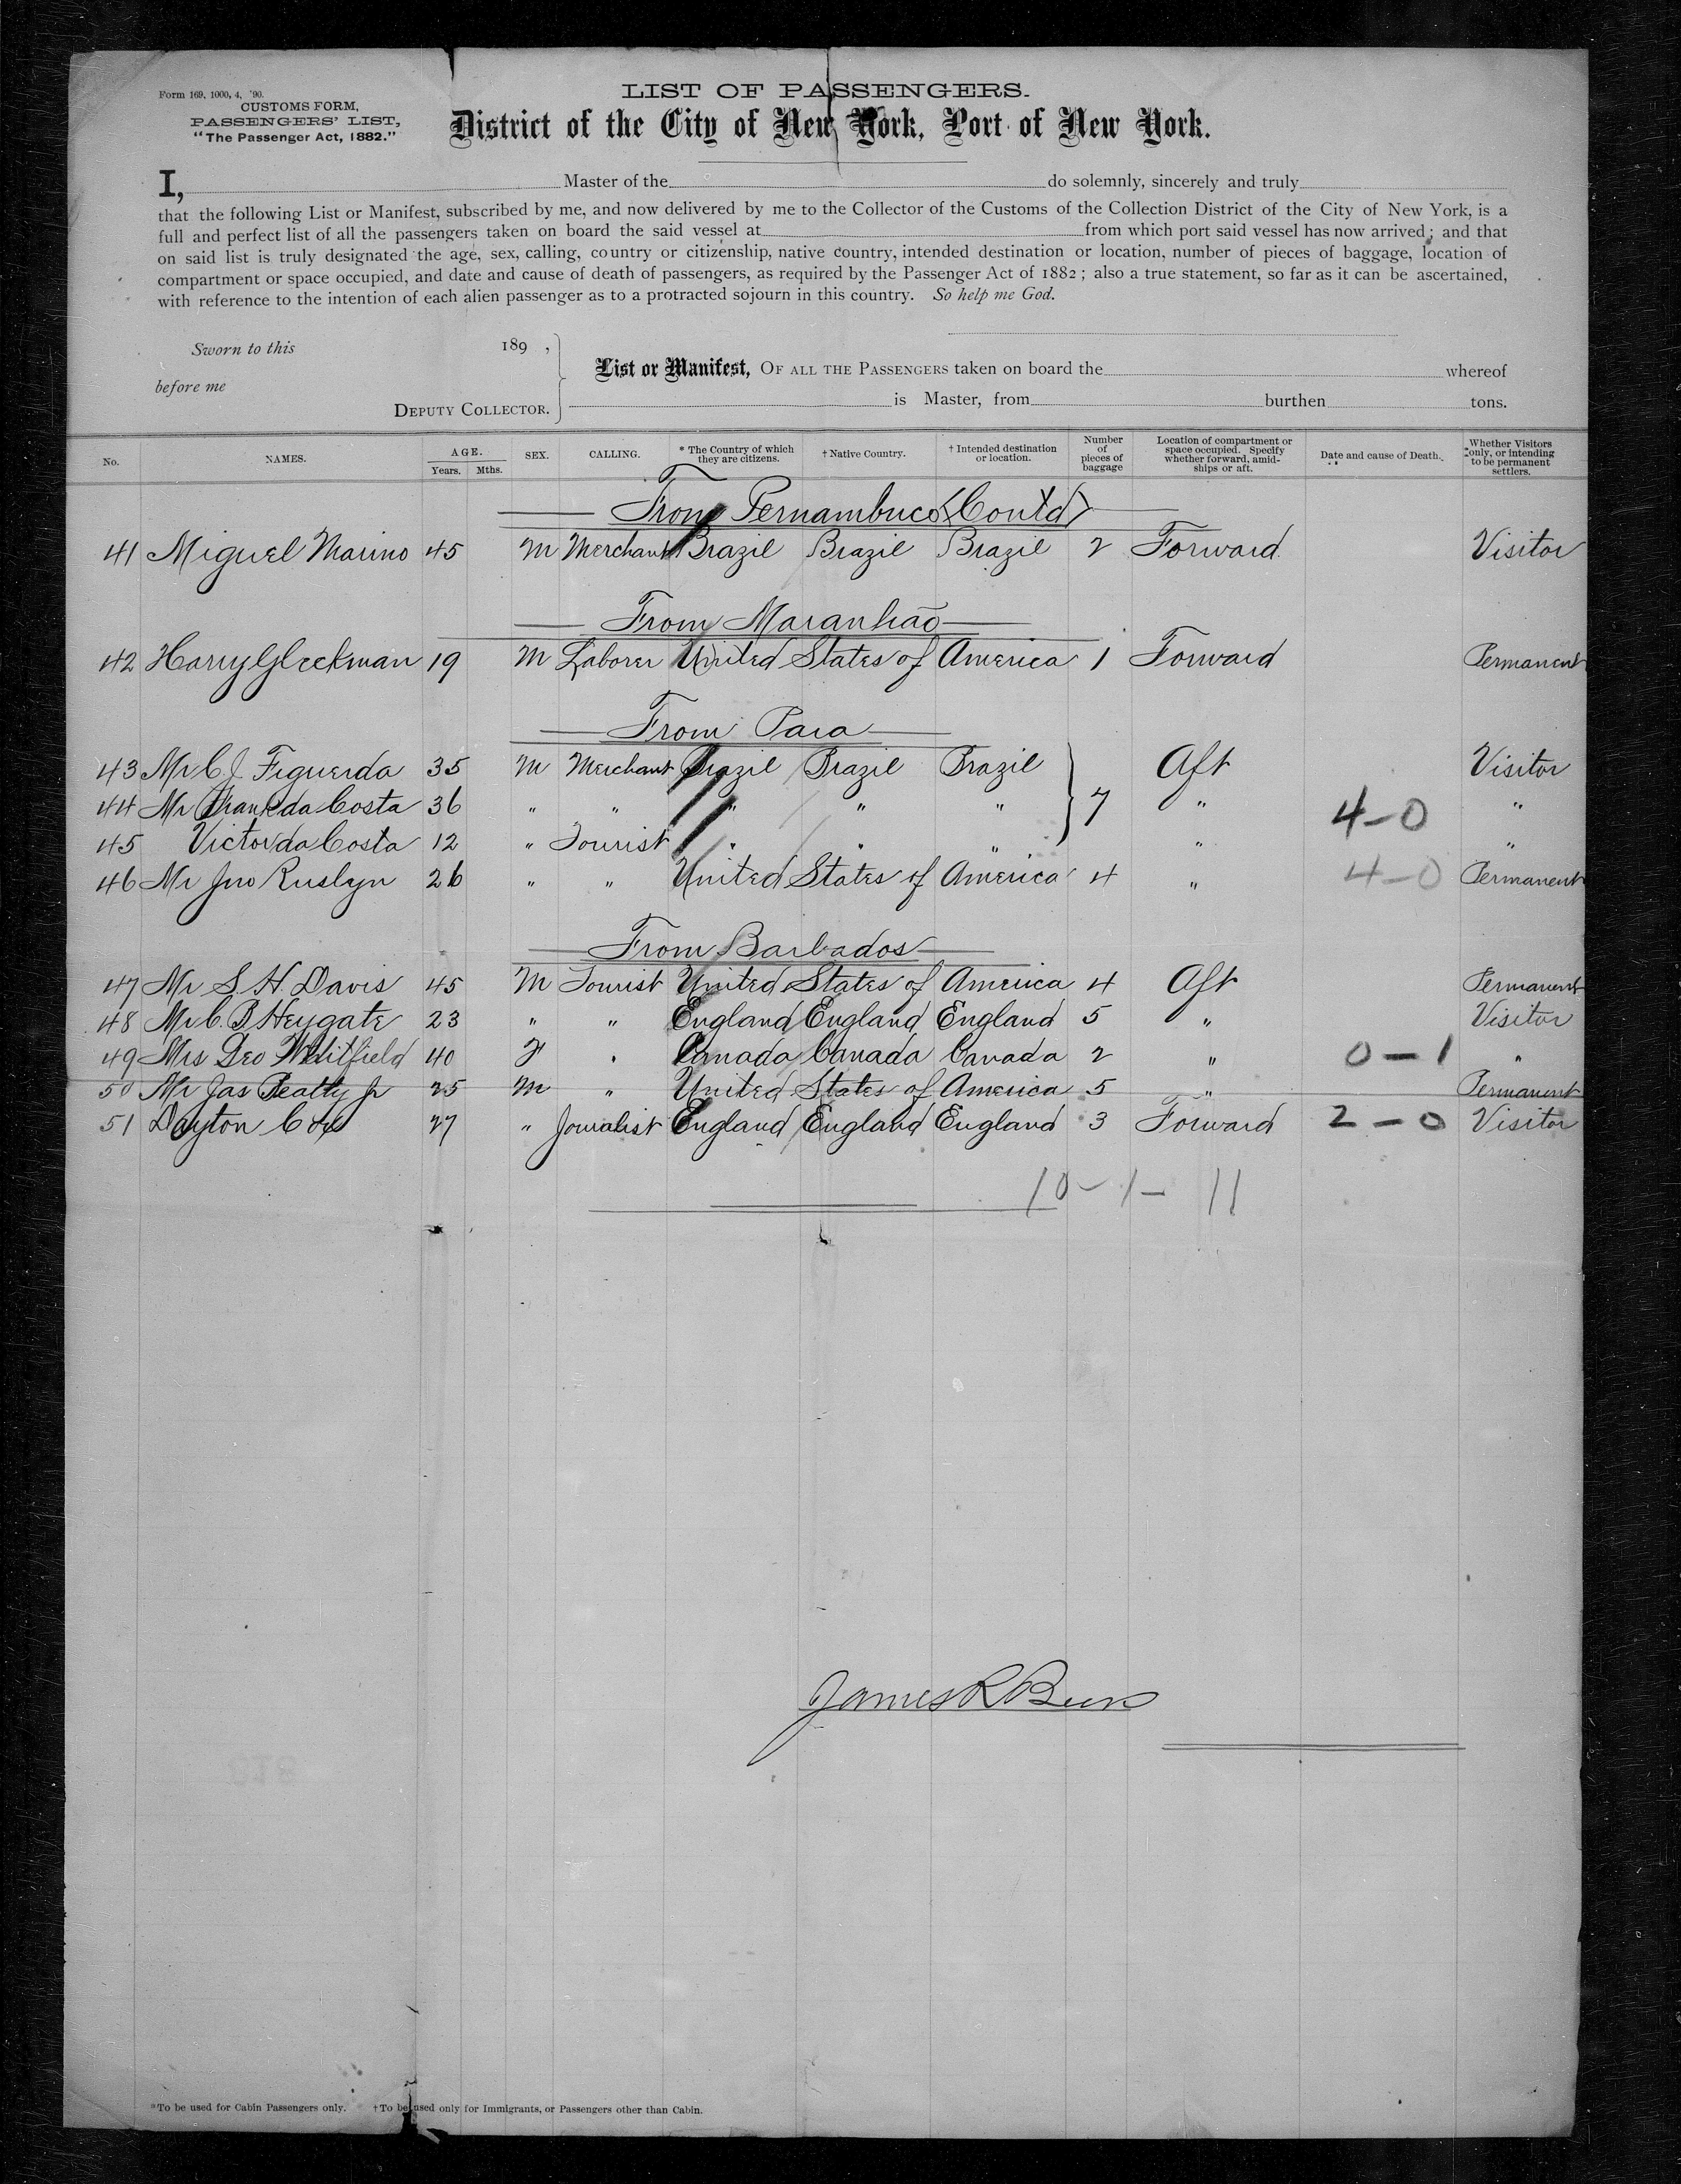 Form 169, 1000, 4, '90.
CUSTOMS FORM,
PASSENGERS' LIST,
"The Passenger Act, 1882."
LIST OF PASSENGERS.
District of the City of New York, Port of New York.
I, Master of the do solemnly, sincerely and truly
that the following List or Manifest, subscribed by me, and now delivered by me to the Collector of the Customs of the Collection District of the City of New York, is a
full and perfect list of all the passengers taken on board the said vessel at from which port said vessel has now arrived; and that
on said list is truly designated the age, sex, calling, country or citizenship, native country, intended destination or location, number of pieces of baggage, location of
compartment or space occupied, and date and cause of death of passengers, as required by the Passenger Act of 1882; also a true statement, so far as it can be ascertained,
with reference to the intention of each alien passenger as to a protracted sojourn in this country. So help me God.
Sworn to this 189 ,
before me
DEPUTY COLLECTOR.
List or Manifest, OF ALL THE PASSENGERS taken on board the whereof
is Master, from burthen tons.
No. NAMES. AGE. Years. Mths. SEX. CALLING. * The Country of which they are citizens. † Native Country. † Intended destination or location. Number of pieces of baggage Location of compartment or space occupied. Specify whether forward, amidships or aft. Date and cause of Death. Whether Visitors only, or intending to be permanent settlers.
From Pernambuco (Contd)
41 Miguel Marino 45 M Merchant Brazil Brazil Brazil 2 Forward Visitor
From Maranhaõ
42 Harry Gleckman 19 M Laborer United States of America 1 Forward Permanent
From Para
43 Mr C. J. Figuerda 35 M Merchant Brazil Brazil Brazil Aft Visitor
44 Mr Frank da Costa 36 " " " " " 7 " 4-0 "
45 Victor da Costa 12 " Tourist " " " " "
46 Mr Jno Ruslyn 26 " " United States of America 4 " 4-0 Permanent
From Barbados
47 Mr S. H. Davis 45 M Tourist United States of America 4 Aft Permanent
48 Mr C. B Heygate 23 " " England England England 5 " Visitor
49 Mrs Geo Whitfield 40 F " Canada Canada Canada 2 " 0-1 "
50 Mr Jas Beatty Jr 25 M " United States of America 5 " Permanent
51 Dayton 27 " Jouralist England England England 3 Forward 2-0 Visitor
10-1-11
James R Beers
*To be used for Cabin Passengers only. †To be used only for Immigrants, or Passengers other than Cabin.